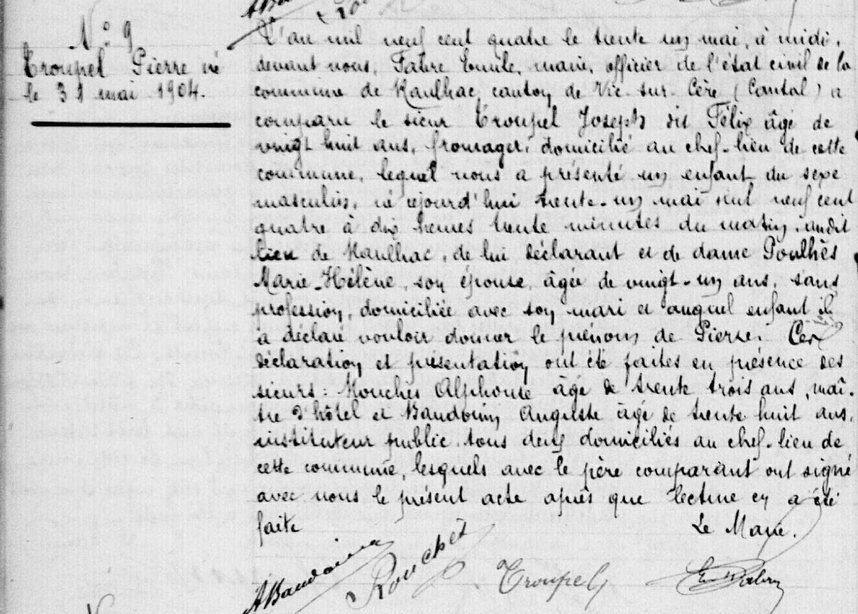 N° 9
Troupel Pierre né
le 31 mai 1904.
L'an mil neuf cent quatre le trente un mai, à midi,
devant nous, Fabre Emile, maire, officier de l'état civil de la
commune de Raulhac, canton de Vic sur Cère (Cantal) a
comparu le sieur Troupel Joseph dit Félix âgé de
vingt huit ans, fromager, domicilié au chef-lieu de cette
commune, lequel nous a présenté un enfant du sexe
masculin, né cejourd'hui trente-un mai mil neuf cent
quatre à dix heures trente minutes du matin, audit
lieu de Raulhac, de lui déclarant et de dame Poulhès
Marie-Hélène, son épouse, âgée de vingt-un ans, sans
profession, domiciliée avec son mari et auquel enfant il
a déclaré vouloir donner le prénom de Pierre. Ces
déclaration et présentation ont été faites en présence des
sieurs: Rouchès Alphonse âgé de trente trois ans, maî-
tre d'hôtel et Baudouin Auguste âgé de trente huit ans,
instituteur public tous deux domiciliés au chef-lieu de
cette commune, lesquels avec le père comparant ont signé
avec nous le présent acte après que lecture en a été
faite
Le Maire.
ABaudouin Rouchès Troupel Em Fabre